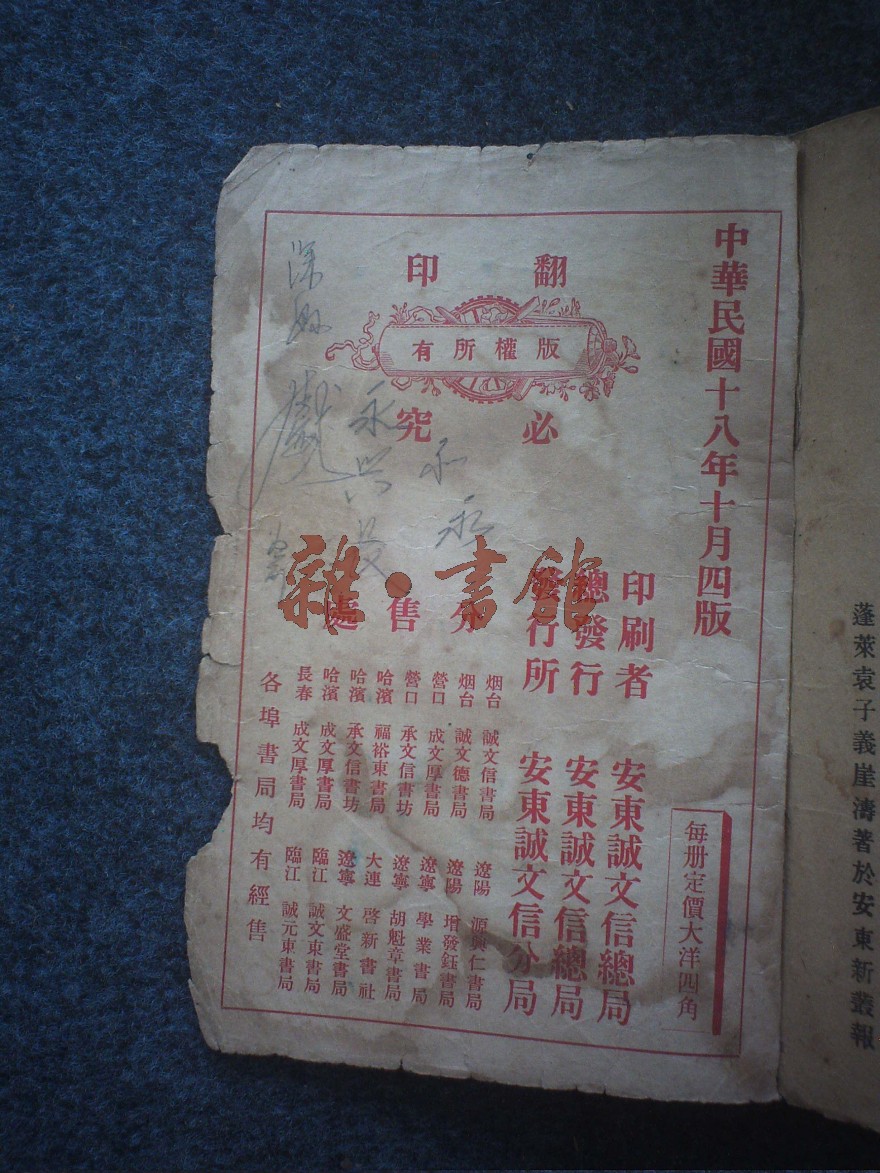 蓬萊袁子義崖濤著於安東新叢報
中華民國十八年十月四版
每册定價大洋四角
翻印
版權所有
必究
印刷者 安東誠文信總局
總發行 安東誠文信總局
發行所 安東誠文信分局
分售處
烟台 誠文信書局 遼陽 源興仁書局
烟台 誠文德書局 遼陽 增發鈺書局
營口 成文厚書局 遼寧 學業書局
營口 承文信書坊 遼寧 胡魁章書局
哈濱 福裕東書局 大連 啓新書社
哈濱 承文信書坊 遼寧 文盛堂書局
哈濱 成文厚書局 臨江 誠文東書局
長春 成文厚書局 臨江 誠元東書局
各埠書局均有經售
永
永
雜·書館